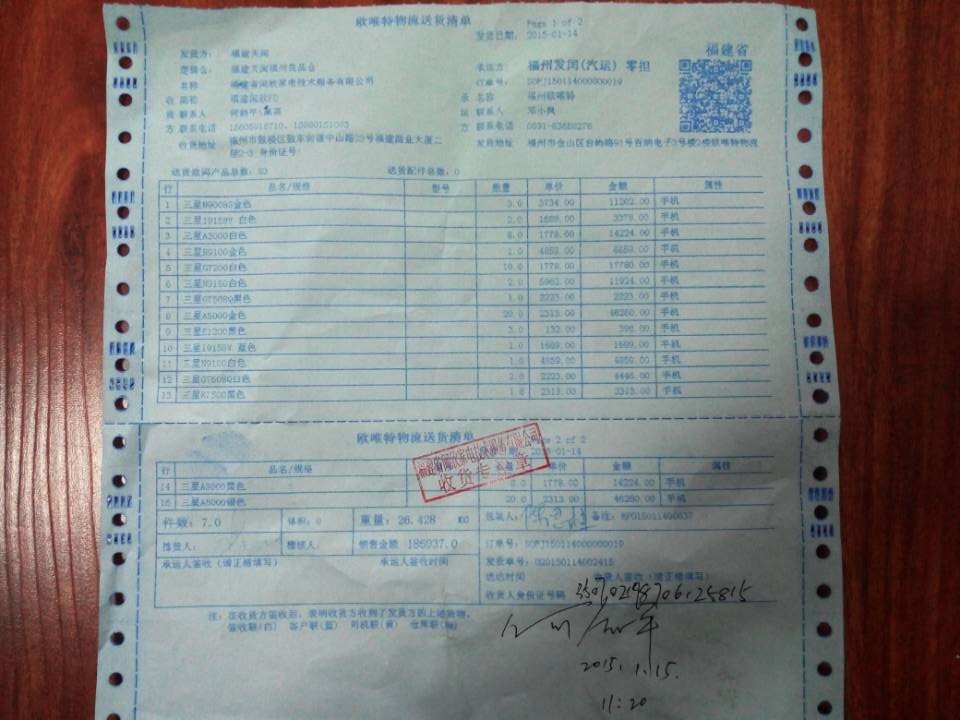 欧唯特物流送货清单
Page 1 of 2
发货日期: 2015-01-14
福建省
发货方: 福建天闻
逻辑仓: 福建天闻福州良品仓
名称 福建省闽欧家电技术服务有限公司
收 简称 福建闽欧FD
货 联系人
方 联系电话
收货地址 福州市鼓楼区鼓东街道中山路23号福建国业大厦二层2-3 身份证号:
承运方: 福州发闵(汽运) 零担
订单号: SOPJ150114000000019
承 名称 福州欧唯特
运 联系人 邓小凤
方 联系电话 0591-83658276
发货地址 福州市仓山区白湖路91号百纳电子3号楼2楼欧唯特物流
送货数码产品总数: 83 送货配件总数: 0
行 品名/规格 型号 数量 单价 金额 属性
1 三星N9008S金色 3.0 3734.00 11202.00 手机
2 三星I9158V 白色 2.0 1689.00 3378.00 手机
3 三星A3000白色 8.0 1778.00 14224.00 手机
4 三星N9100金色 1.0 4859.00 4859.00 手机
5 三星G7200白色 10.0 1778.00 17780.00 手机
6 三星N9150白色 2.0 5962.00 11924.00 手机
7 三星G7508Q黑色 1.0 2223.00 2223.00 手机
8 三星A5000金色 20.0 2313.00 46260.00 手机
9 三星E1200黑色 3.0 132.00 396.00 手机
10 三星I9158V 蓝色 1.0 1689.00 1689.00 手机
11 三星N9100白色 1.0 4859.00 4859.00 手机
12 三星G7508Q白色 2.0 2223.00 4446.00 手机
13 黑色 1.0 2313.00 2313.00 手机
欧唯特物流送货清单
Page 2 of 2
2015-01-14
行 品名/规格 数量 单价 金额 属性
14 三星A3000黑色 8.0 1778.00 14224.00 手机
15 三星A5000银色 20.0 2313.00 46260.00 手机
收货专用章
件数: 7.0 体积: 0 重量: 26.428 KG 包装人: 备注:
拣货人: 稽核人: 销售金额 186037.0 订单号: SOPJ150114000000019
承运人签收(请正楷填写) 承运人签收时间 发货单号: 020150114002415
送达时间 收货人签收(请正楷填写)
收货人身份证号码
注: 在收货方签收后, 表明收货方收到了发货方的上述货物。
签收联(白) 客户联(蓝) 司机联(黄) 仓库联(粉)
2015.1.15.
11:20